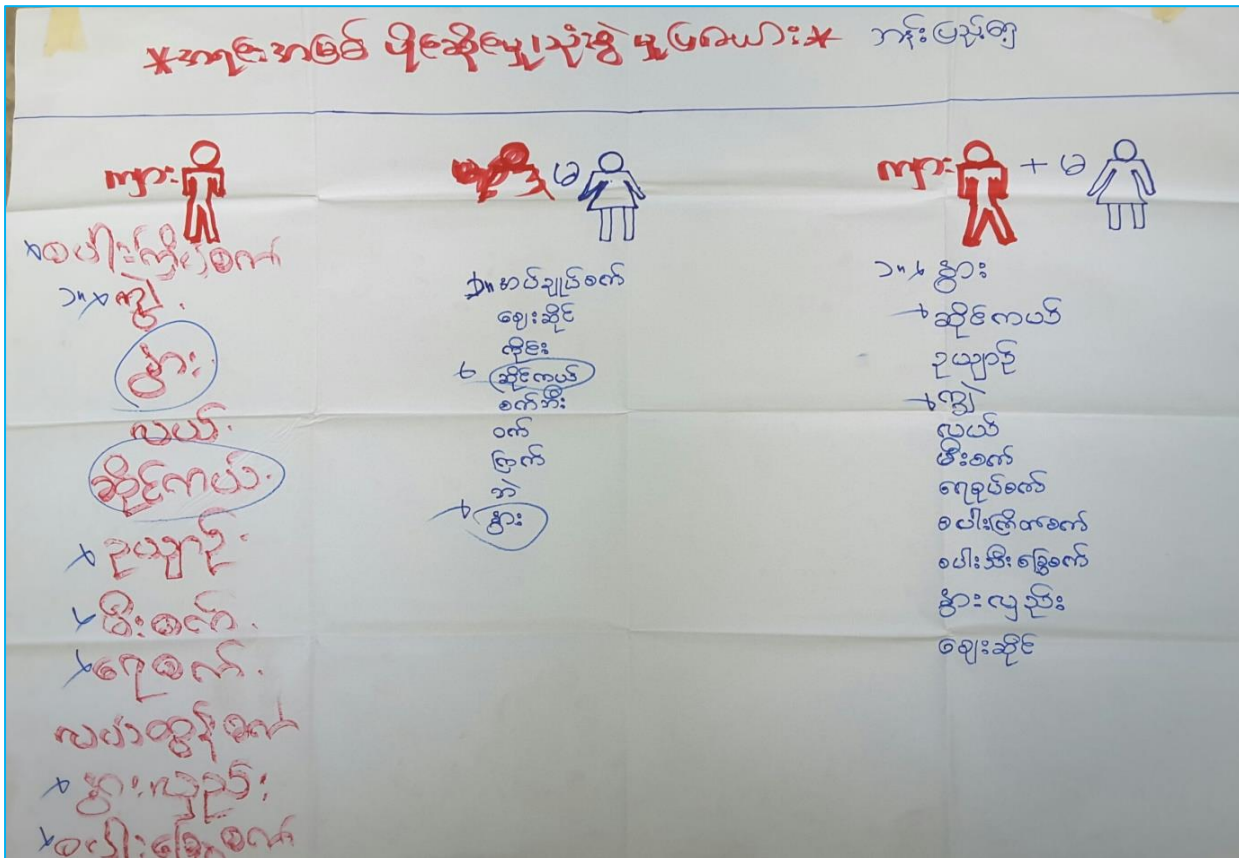 *အရင်းအမြစ် ပိုင်ဆိုင်မှု၊သုံးစွဲမှုပြဇယား*
ကျား
စပါးကြိတ်စက်
ကျွဲ
နွား
လယ်
ဆိုင်ကယ်
ဥယျာဉ်
မီးစက်
ရေစက်
လယ်ထွန်စက်
နွားလှည်း
စပါးခြွေစက်
မ
အပ်ချုပ်စက်
ဈေးဆိုင်
ဆိုင်ကယ်
စက်ဘီး
ဝက်
ကြက်
ဘဲ
နွား
ကျား + မ
နွား
ဆိုင်ကယ်
ဥယျာဉ်
ကျွဲ
လယ်
မီးစက်
ရေစုပ်စက်
စပါးကြိတ်စက်
စပါးသီးခြွေစက်
နွားလှည်း
ဈေးဆိုင်